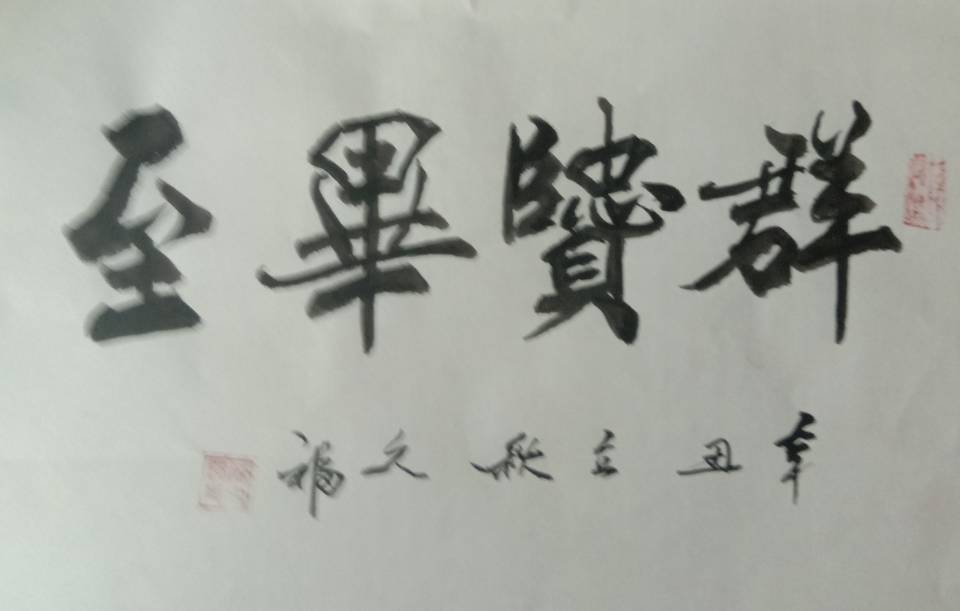 群賢畢至
辛丑立秋文福